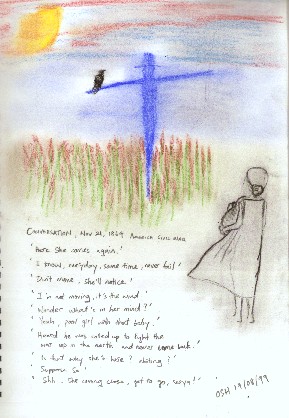 CONVERSATION, Nov 21, 1864 America Civil War
'Here she comes again.'
'I know, everyday, same time, never fail'
'Don't move, she'll notice.'
'I'm not moving, it's the wind'
'Wonder what's in her mind?'
'Yeah, poor girl with that baby.'
'Heard he was called up to fight the
war up in the north and never come back.'
'Is that why she's here? Waiting?'
'Suppose so'
'Shh. She coming close, got to go, seeya!'
OSH 19/08/99